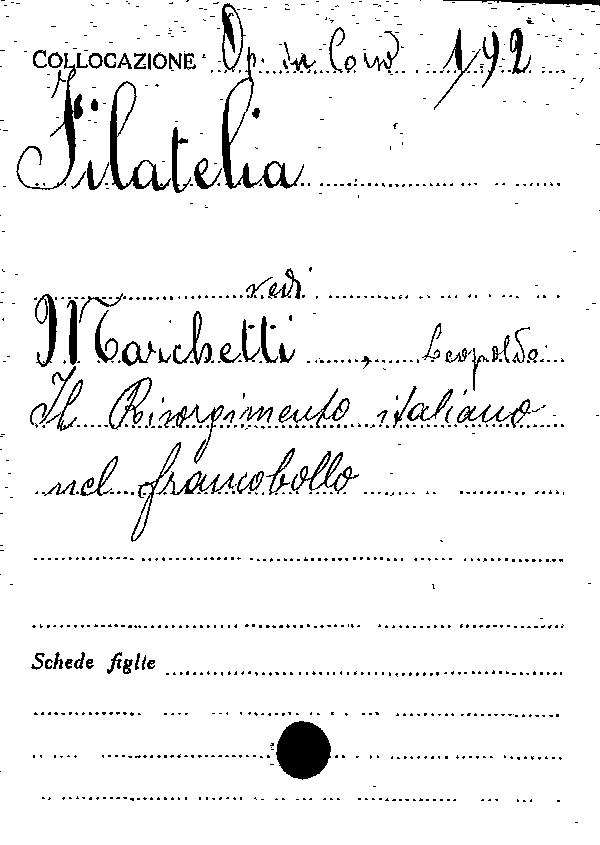 COLLOCAZIONE Op. in Cons 192
Filatelia
vedi
Marchetti, Leopoldo
Il Risorgimento italiano
nel francobollo
Schede figlie